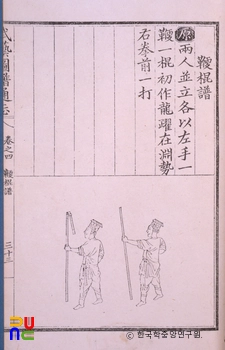 鞭棍譜
原兩人並立各以左手一
鞭一棍初作龍躍在淵勢
右拳前一打
武藝圖譜通志
卷之四
鞭棍譜
三十三
© 한국학중앙연구원